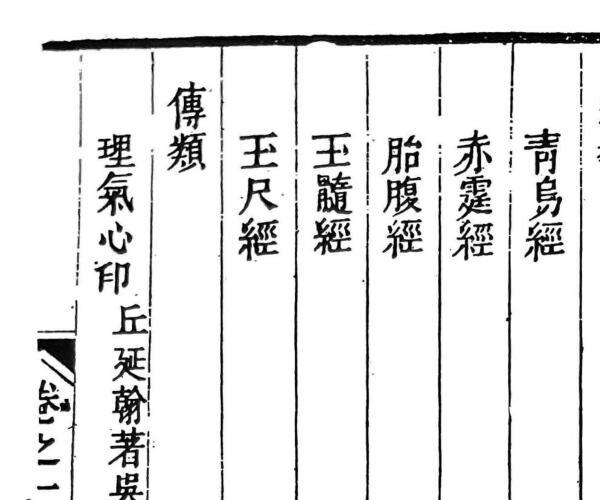 青烏經
赤霆經
胎腹經
玉髓經
玉尺經
傳類
理氣心印丘延翰著吳
卷之一